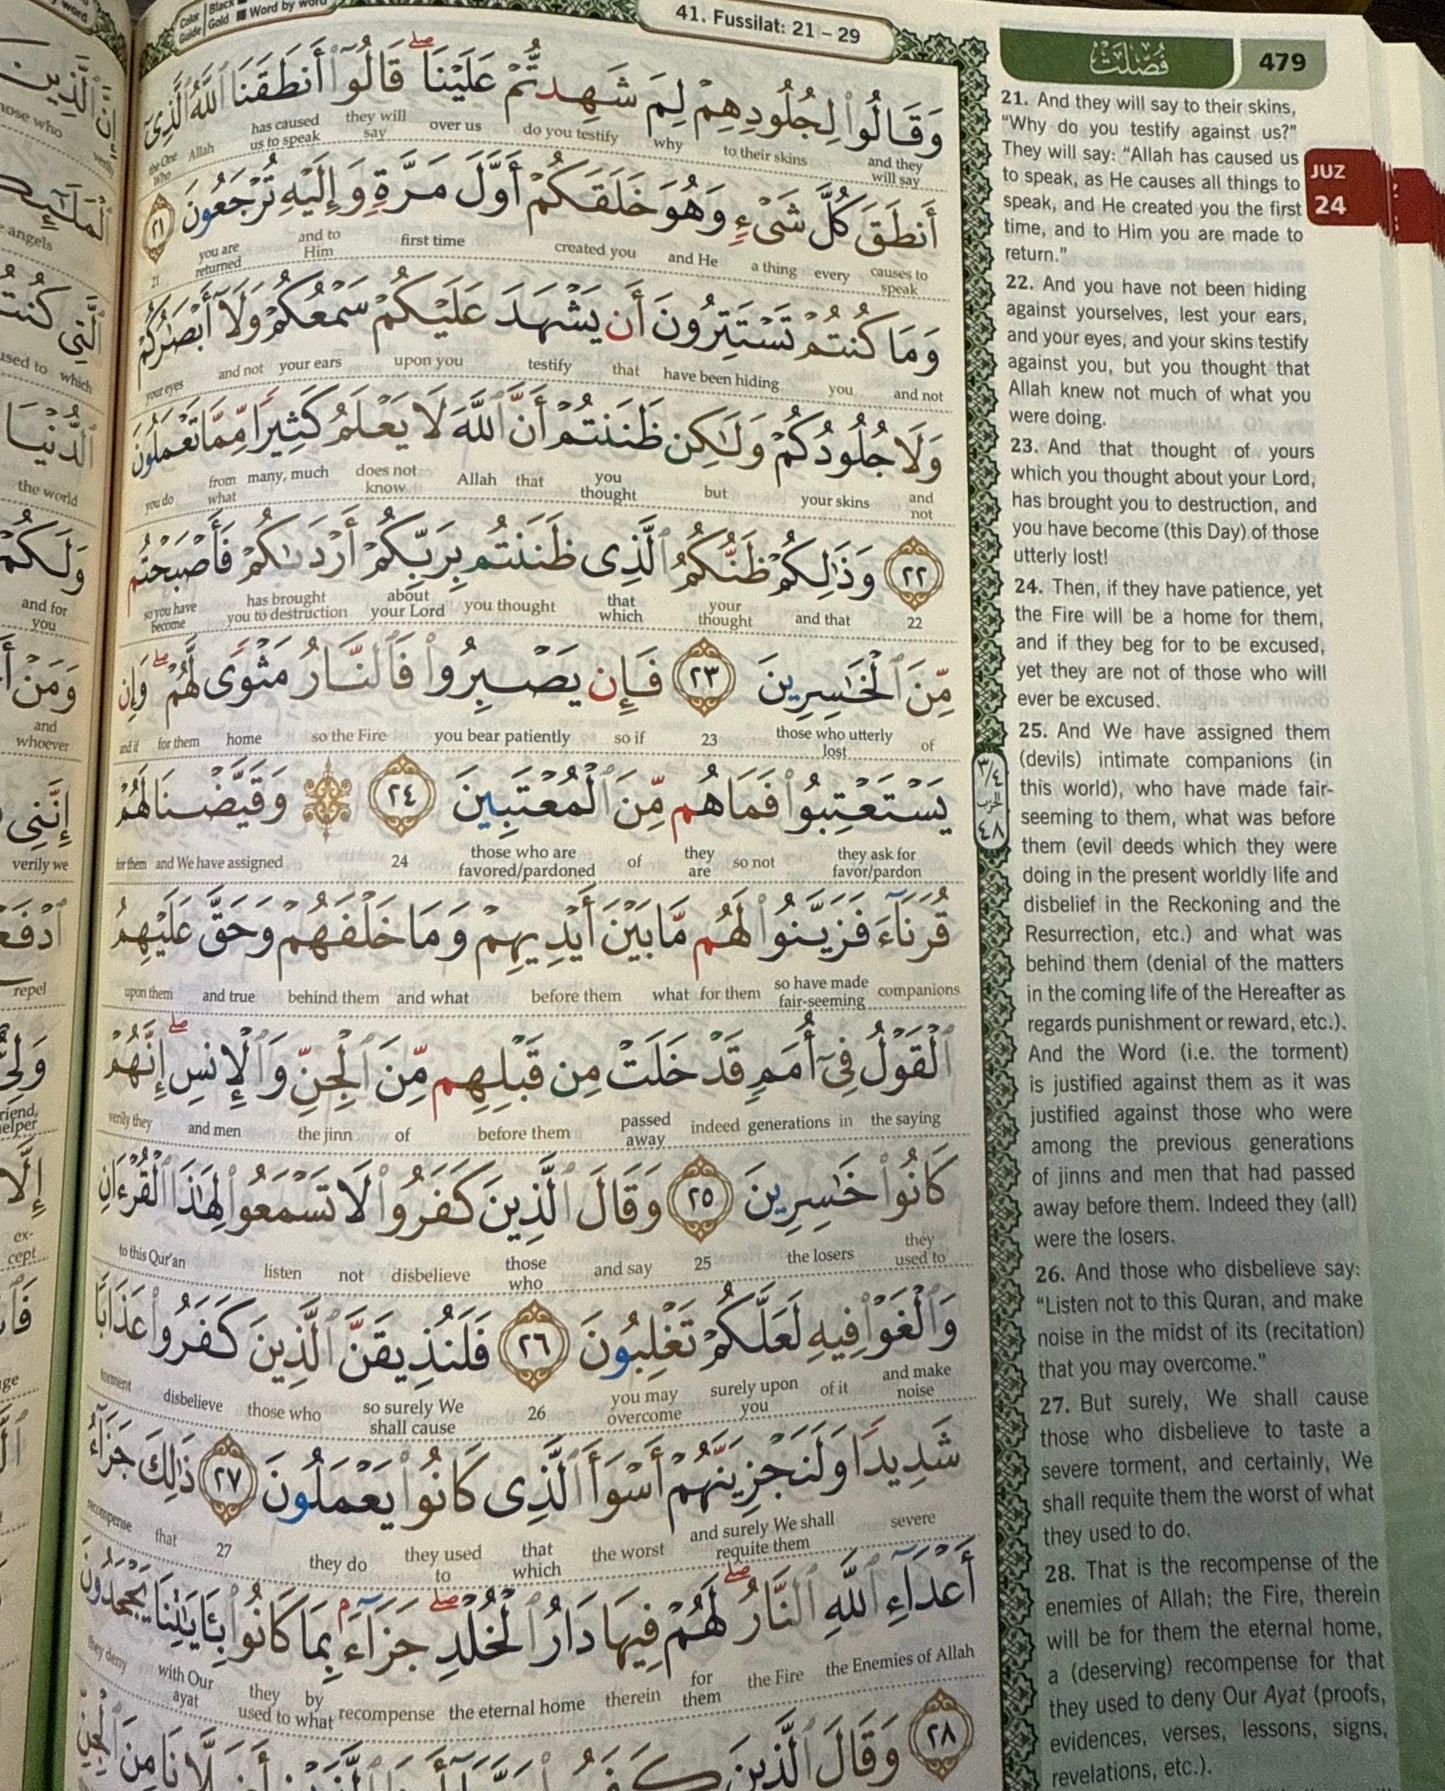 41. Fussilat: 21 – 29
فُصِّلَتْ
479
JUZ
24
وَقَالُوا۟ لِجُلُودِهِمْ لِمَ شَهِدتُّمْ عَلَيْنَا ۖ قَالُوٓا۟ أَنطَقَنَا ٱللَّهُ ٱلَّذِىٓ
and they will say to their skins why do you testify over us they will say has caused us to speak Allah the One Who
أَنطَقَ كُلَّ شَىْءٍ وَهُوَ خَلَقَكُمْ أَوَّلَ مَرَّةٍ وَإِلَيْهِ تُرْجَعُونَ ٢١
causes to speak every a thing and He created you first time and to Him you are returned 21
وَمَا كُنتُمْ تَسْتَتِرُونَ أَن يَشْهَدَ عَلَيْكُمْ سَمْعُكُمْ وَلَآ أَبْصَٰرُكُمْ
and not you have been hiding that testify upon you your ears and not your eyes
وَلَا جُلُودُكُمْ وَلَٰكِن ظَنَنتُمْ أَنَّ ٱللَّهَ لَا يَعْلَمُ كَثِيرًا مِّمَّا تَعْمَلُونَ
and not your skins but you thought that Allah does not know many, much from what you do
٢٢ وَذَٰلِكُمْ ظَنُّكُمُ ٱلَّذِى ظَنَنتُم بِرَبِّكُمْ أَرْدَىٰكُمْ فَأَصْبَحْتُم
22 and that your thought that which you thought about your Lord has brought you to destruction so you have become
مِّنَ ٱلْخَٰسِرِينَ ٢٣ فَإِن يَصْبِرُوا۟ فَٱلنَّارُ مَثْوًى لَّهُمْ ۖ وَإِن
of those who utterly lost 23 so if you bear patiently so the Fire home for them and if
يَسْتَعْتِبُوا۟ فَمَا هُم مِّنَ ٱلْمُعْتَبِينَ ٢٤ ۞ وَقَيَّضْنَا لَهُمْ
they ask for favor/pardon so not they are of those who are favored/pardoned 24 and We have assigned for them
قُرَنَآءَ فَزَيَّنُوا۟ لَهُم مَّا بَيْنَ أَيْدِيهِمْ وَمَا خَلْفَهُمْ وَحَقَّ عَلَيْهِمُ
companions so have made fair-seeming for them what before them and what behind them and true upon them
ٱلْقَوْلُ فِىٓ أُمَمٍ قَدْ خَلَتْ مِن قَبْلِهِم مِّنَ ٱلْجِنِّ وَٱلْإِنسِ ۖ إِنَّهُمْ
the saying in generations indeed passed away before them of the jinn and men verily they
كَانُوا۟ خَٰسِرِينَ ٢٥ وَقَالَ ٱلَّذِينَ كَفَرُوا۟ لَا تَسْمَعُوا۟ لِهَٰذَا ٱلْقُرْءَانِ
they used to the losers 25 and say those who disbelieve not listen to this Qur'an
وَٱلْغَوْا۟ فِيهِ لَعَلَّكُمْ تَغْلِبُونَ ٢٦ فَلَنُذِيقَنَّ ٱلَّذِينَ كَفَرُوا۟ عَذَابًا
and make noise of it surely upon you you may overcome 26 so surely We shall cause those who disbelieve torment
شَدِيدًا وَلَنَجْزِيَنَّهُمْ أَسْوَأَ ٱلَّذِى كَانُوا۟ يَعْمَلُونَ ٢٧ ذَٰلِكَ جَزَآءُ
severe and surely We shall requite them the worst that which they used to they do 27 that recompense
أَعْدَآءِ ٱللَّهِ ٱلنَّارُ ۖ لَهُمْ فِيهَا دَارُ ٱلْخُلْدِ ۖ جَزَآءًۢ بِمَا كَانُوا۟ بِـَٔايَٰتِنَا يَجْحَدُونَ
the Enemies of Allah the Fire for them therein the eternal home recompense by what they used to with Our ayat they deny
٢٨ وَقَالَ ٱلَّذِينَ
٣/٤
الحزب
٤٨
21. And they will say to their skins,
"Why do you testify against us?"
They will say: "Allah has caused us
to speak, as He causes all things to
speak, and He created you the first
time, and to Him you are made to
return."
22. And you have not been hiding
against yourselves, lest your ears,
and your eyes, and your skins testify
against you, but you thought that
Allah knew not much of what you
were doing.
23. And that thought of yours
which you thought about your Lord,
has brought you to destruction, and
you have become (this Day) of those
utterly lost!
24. Then, if they have patience, yet
the Fire will be a home for them,
and if they beg for to be excused,
yet they are not of those who will
ever be excused.
25. And We have assigned them
(devils) intimate companions (in
this world), who have made fair-
seeming to them, what was before
them (evil deeds which they were
doing in the present worldly life and
disbelief in the Reckoning and the
Resurrection, etc.) and what was
behind them (denial of the matters
in the coming life of the Hereafter as
regards punishment or reward, etc.).
And the Word (i.e. the torment)
is justified against them as it was
justified against those who were
among the previous generations
of jinns and men that had passed
away before them. Indeed they (all)
were the losers.
26. And those who disbelieve say:
"Listen not to this Quran, and make
noise in the midst of its (recitation)
that you may overcome."
27. But surely, We shall cause
those who disbelieve to taste a
severe torment, and certainly, We
shall requite them the worst of what
they used to do.
28. That is the recompense of the
enemies of Allah; the Fire, therein
will be for them the eternal home,
a (deserving) recompense for that
they used to deny Our Ayat (proofs,
evidences, verses, lessons, signs,
revelations, etc.).